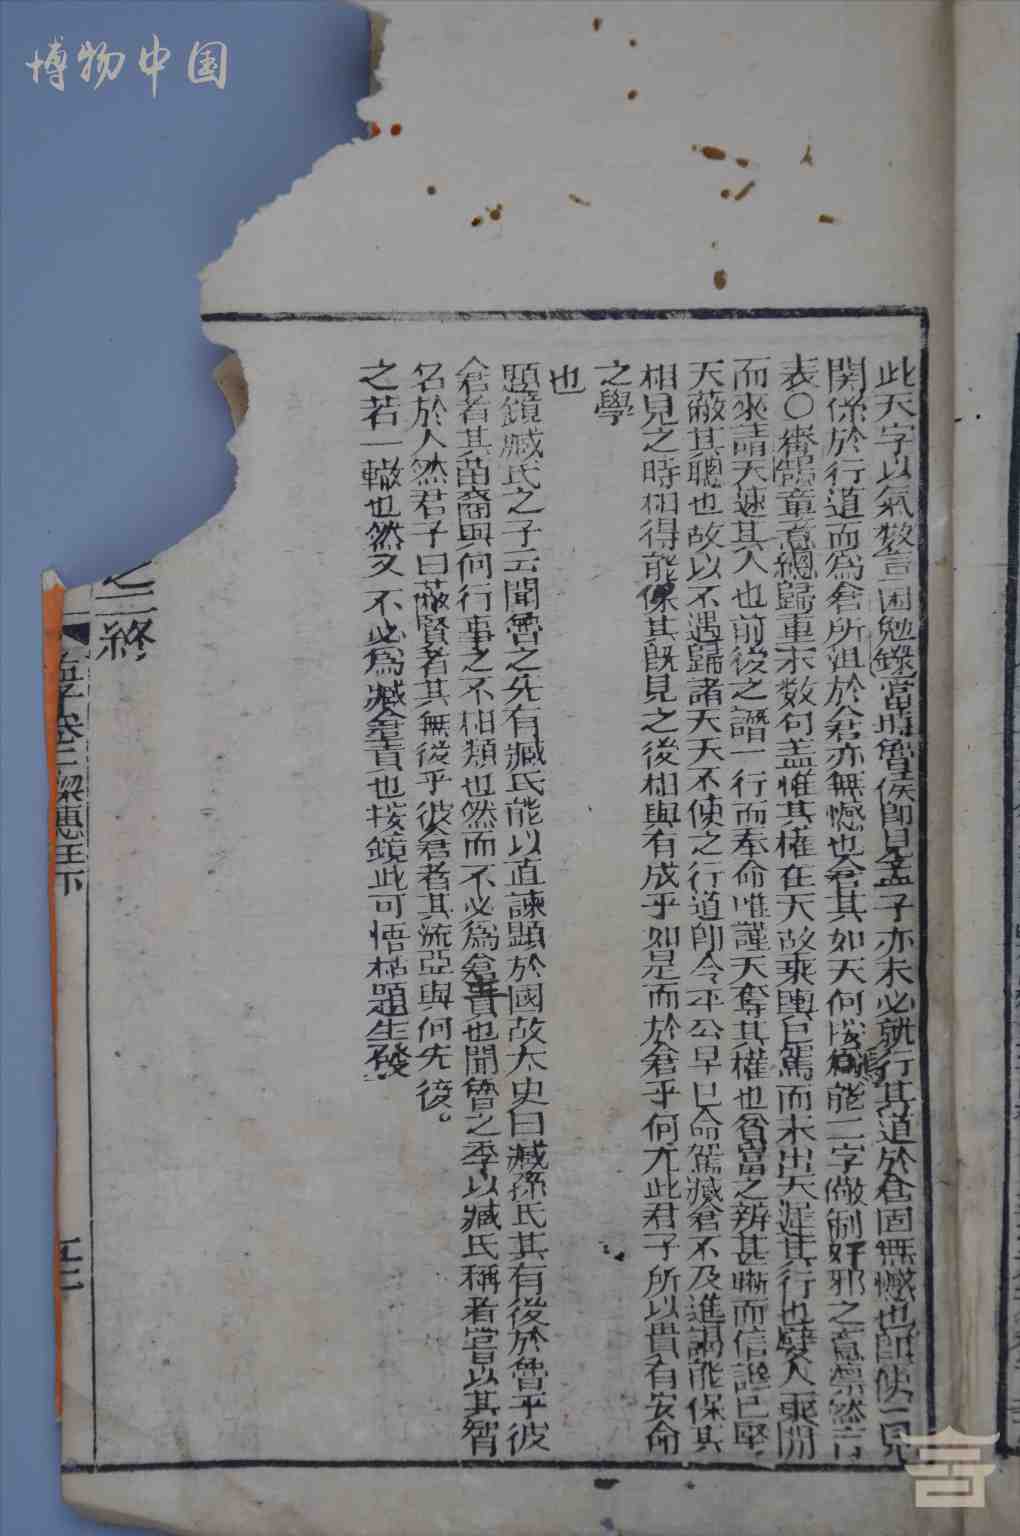 博物中国
此天字以氣数言困勉錄當時魯侯即見孟子亦未必就行其道於倉固無憾也即使一見
関係於行道而為倉所沮於君亦無憾也倉其如天何哉為能二字儆制奸邪之意凜然言
表〇翁鴻章意總歸重末数句盖惟其權在天故乘輿巳駕而未出天遲其行也嬖人乘間
而來請天速其人也前後之譖一行而奉命唯謹天奪其權也貧富之辨甚晰而信讒已堅
天蔽其聰也故以不遇歸諸天天不使之行道即令平公早已命駕臧倉不及進謁能保其
相見之時相得能保其既見之後相與有成乎如是而於倉乎何尤此君子所以貴有安命
之學
也
題鏡臧氏之子云聞魯之先有臧氏能以直諫顯於國故太史曰臧孫氏其有後於魯乎彼
倉者其苗裔與何行事之不相類也然而不必為倉責也聞魯之季以臧氏稱者嘗以其智
名於人然君子曰蔽賢者其無後乎彼倉者其流亞與何先後。
之若一轍也然又不必為臧倉責也按鏡此可悟枯題生發
之二終
孟子卷二梁惠王下
五十二